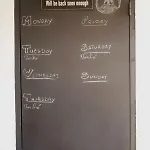 Will be back soon enough
Monday
Friday
Tuesday
Saturday
Wednesday
Sunday
Thursday